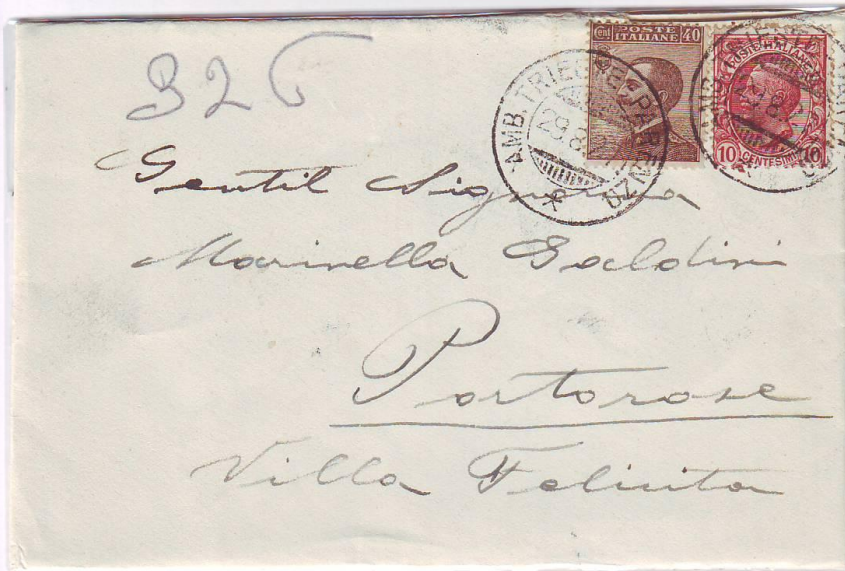 Cent POSTE ITALIANE 40
POSTE ITALIANE
10 CENTESIMI 10
AMB. TRIESTE PARENZO
29.8.
326
Gentil Signorina
Marinella Saldini
Portorose
Villa Felicita